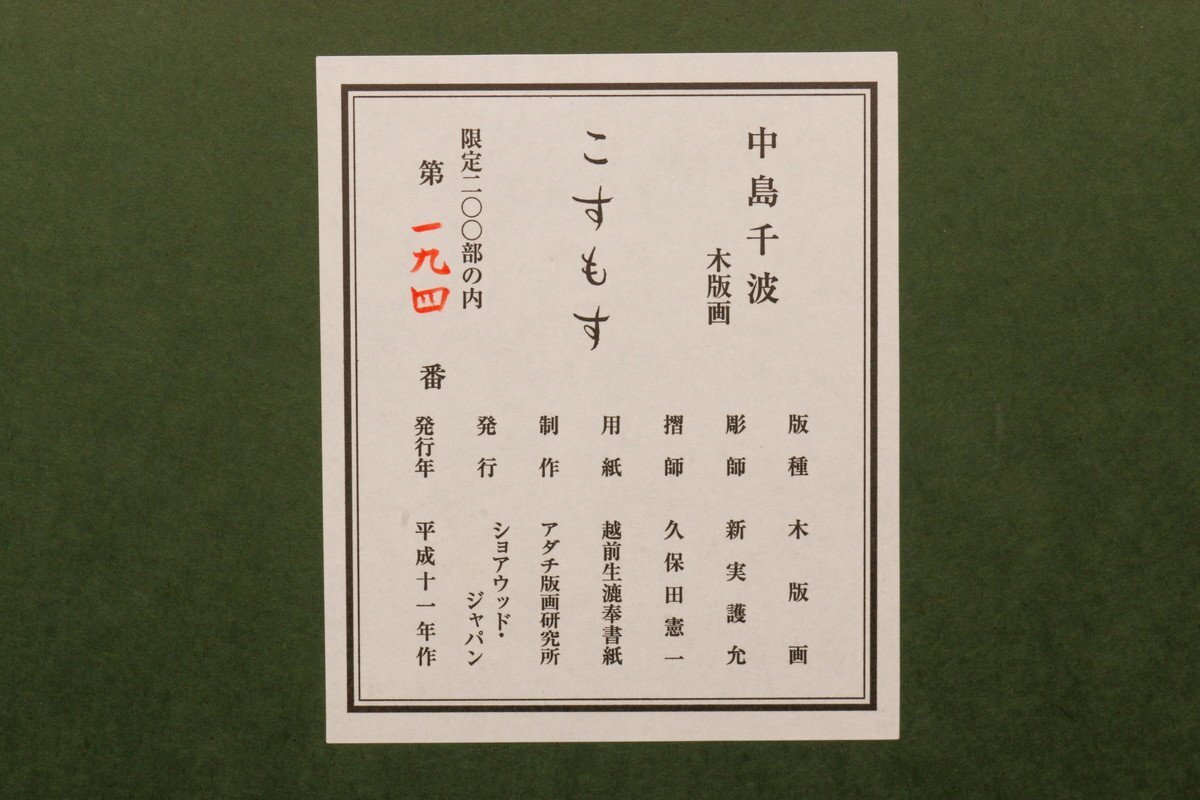 中島千波
木版画
こすもす
限定二〇〇部の内
第 一九四 番
版種 木版画
彫師 新実護允
摺師 久保田憲一
用紙 越前生漉奉書紙
制作 アダチ版画研究所
発行 ショアウッド・
ジャパン
発行年 平成十一年作